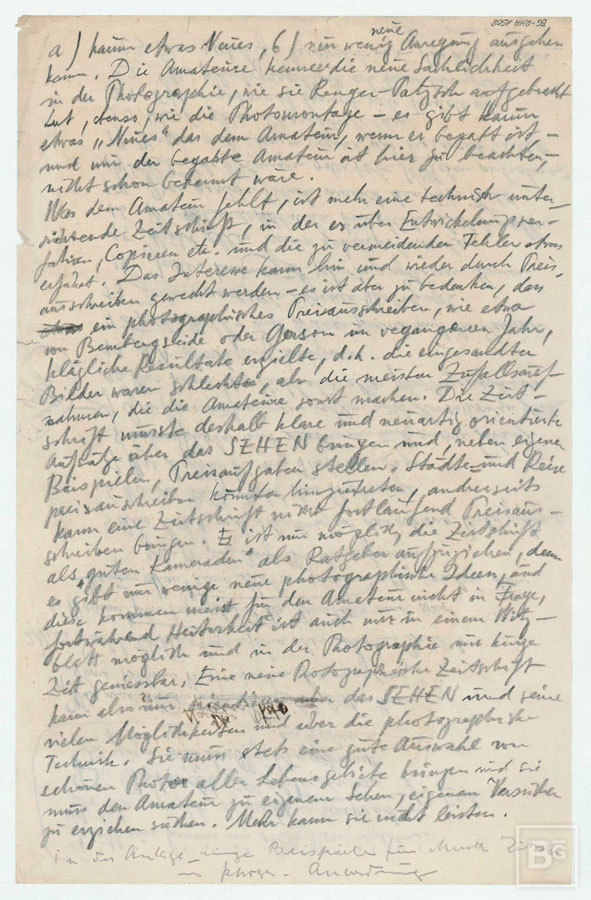 BG-RHA 1508
neue
a) kaum etwas Neues, b) nur wenig Anregung ausgehen
kann. Die Amateure kennen die neue Sachlichkeit
in der Photographie, wie sie Renger-Patzsch aufgebracht
hat, ebenso, wie die Photomontage – es gibt kaum
etwas „Neues" das dem Amateur, wenn er begabt ist –
und nur der begabte Amateur ist hier zu beachten,
nicht schon bekannt wäre.
Was dem Amateur fehlt, ist mehr eine technisch unter-
richtende Zeitschrift, in der er über Entwickelungsver-
fahren, Copieren etc. und die zu vermeidenden Fehler etwas
erfährt. Das Interesse kann hin und wieder durch Preis
ausschreiben geweckt werden – es ist aber zu bedenken, dass
ein photographisches Preisausschreiben, wie etwa
von Bembergseide oder Gerson im vegangenen Jahr,
klägliche Resultate erzielte, d.h. die eingesandten
Bilder waren schlechter, als die meisten Zufallsauf
nahmen, die die Amateure sonst machen. Die Zeit-
schrift müsste deshalb klare und neuartig orientierte
Aufsätze über das SEHEN bringen und, neben eigenen
Beispielen, Preisaufgaben stellen. Städte- und Reise
preisausschreiben könnten hinzutreten, andrerseits
kann eine Zeitschrift nicht fortlaufend Preisaus-
schreiben bringen. Es ist nur möglich, die Zeitschrift
als „guten Kameraden" als Ratgeber aufzuziehen, denn
es gibt nur wenige neue photographische Ideen, und
diese kommen meist für den Amateur nicht in Frage,
fortwährend Heiterkeit ist auch nur in einem Witz-
blatt möglich und in der Photographie nur kurze
Zeit geniessbar. Eine neue Photographische Zeitschrift
kann also nur das SEHEN und seine
vielen Möglichkeiten und über die photographische
Technik. Sie muss stets eine gute Auswahl von
schönen Photos aller Lebensgebiete bringen und sie
muss den Amateur zu eigenem Sehen, eigenen Versuchen
zu erziehen suchen. Mehr kann sie nicht leisten.
In der Anlage einige Beispiele für
photogr. Anwendung
BG